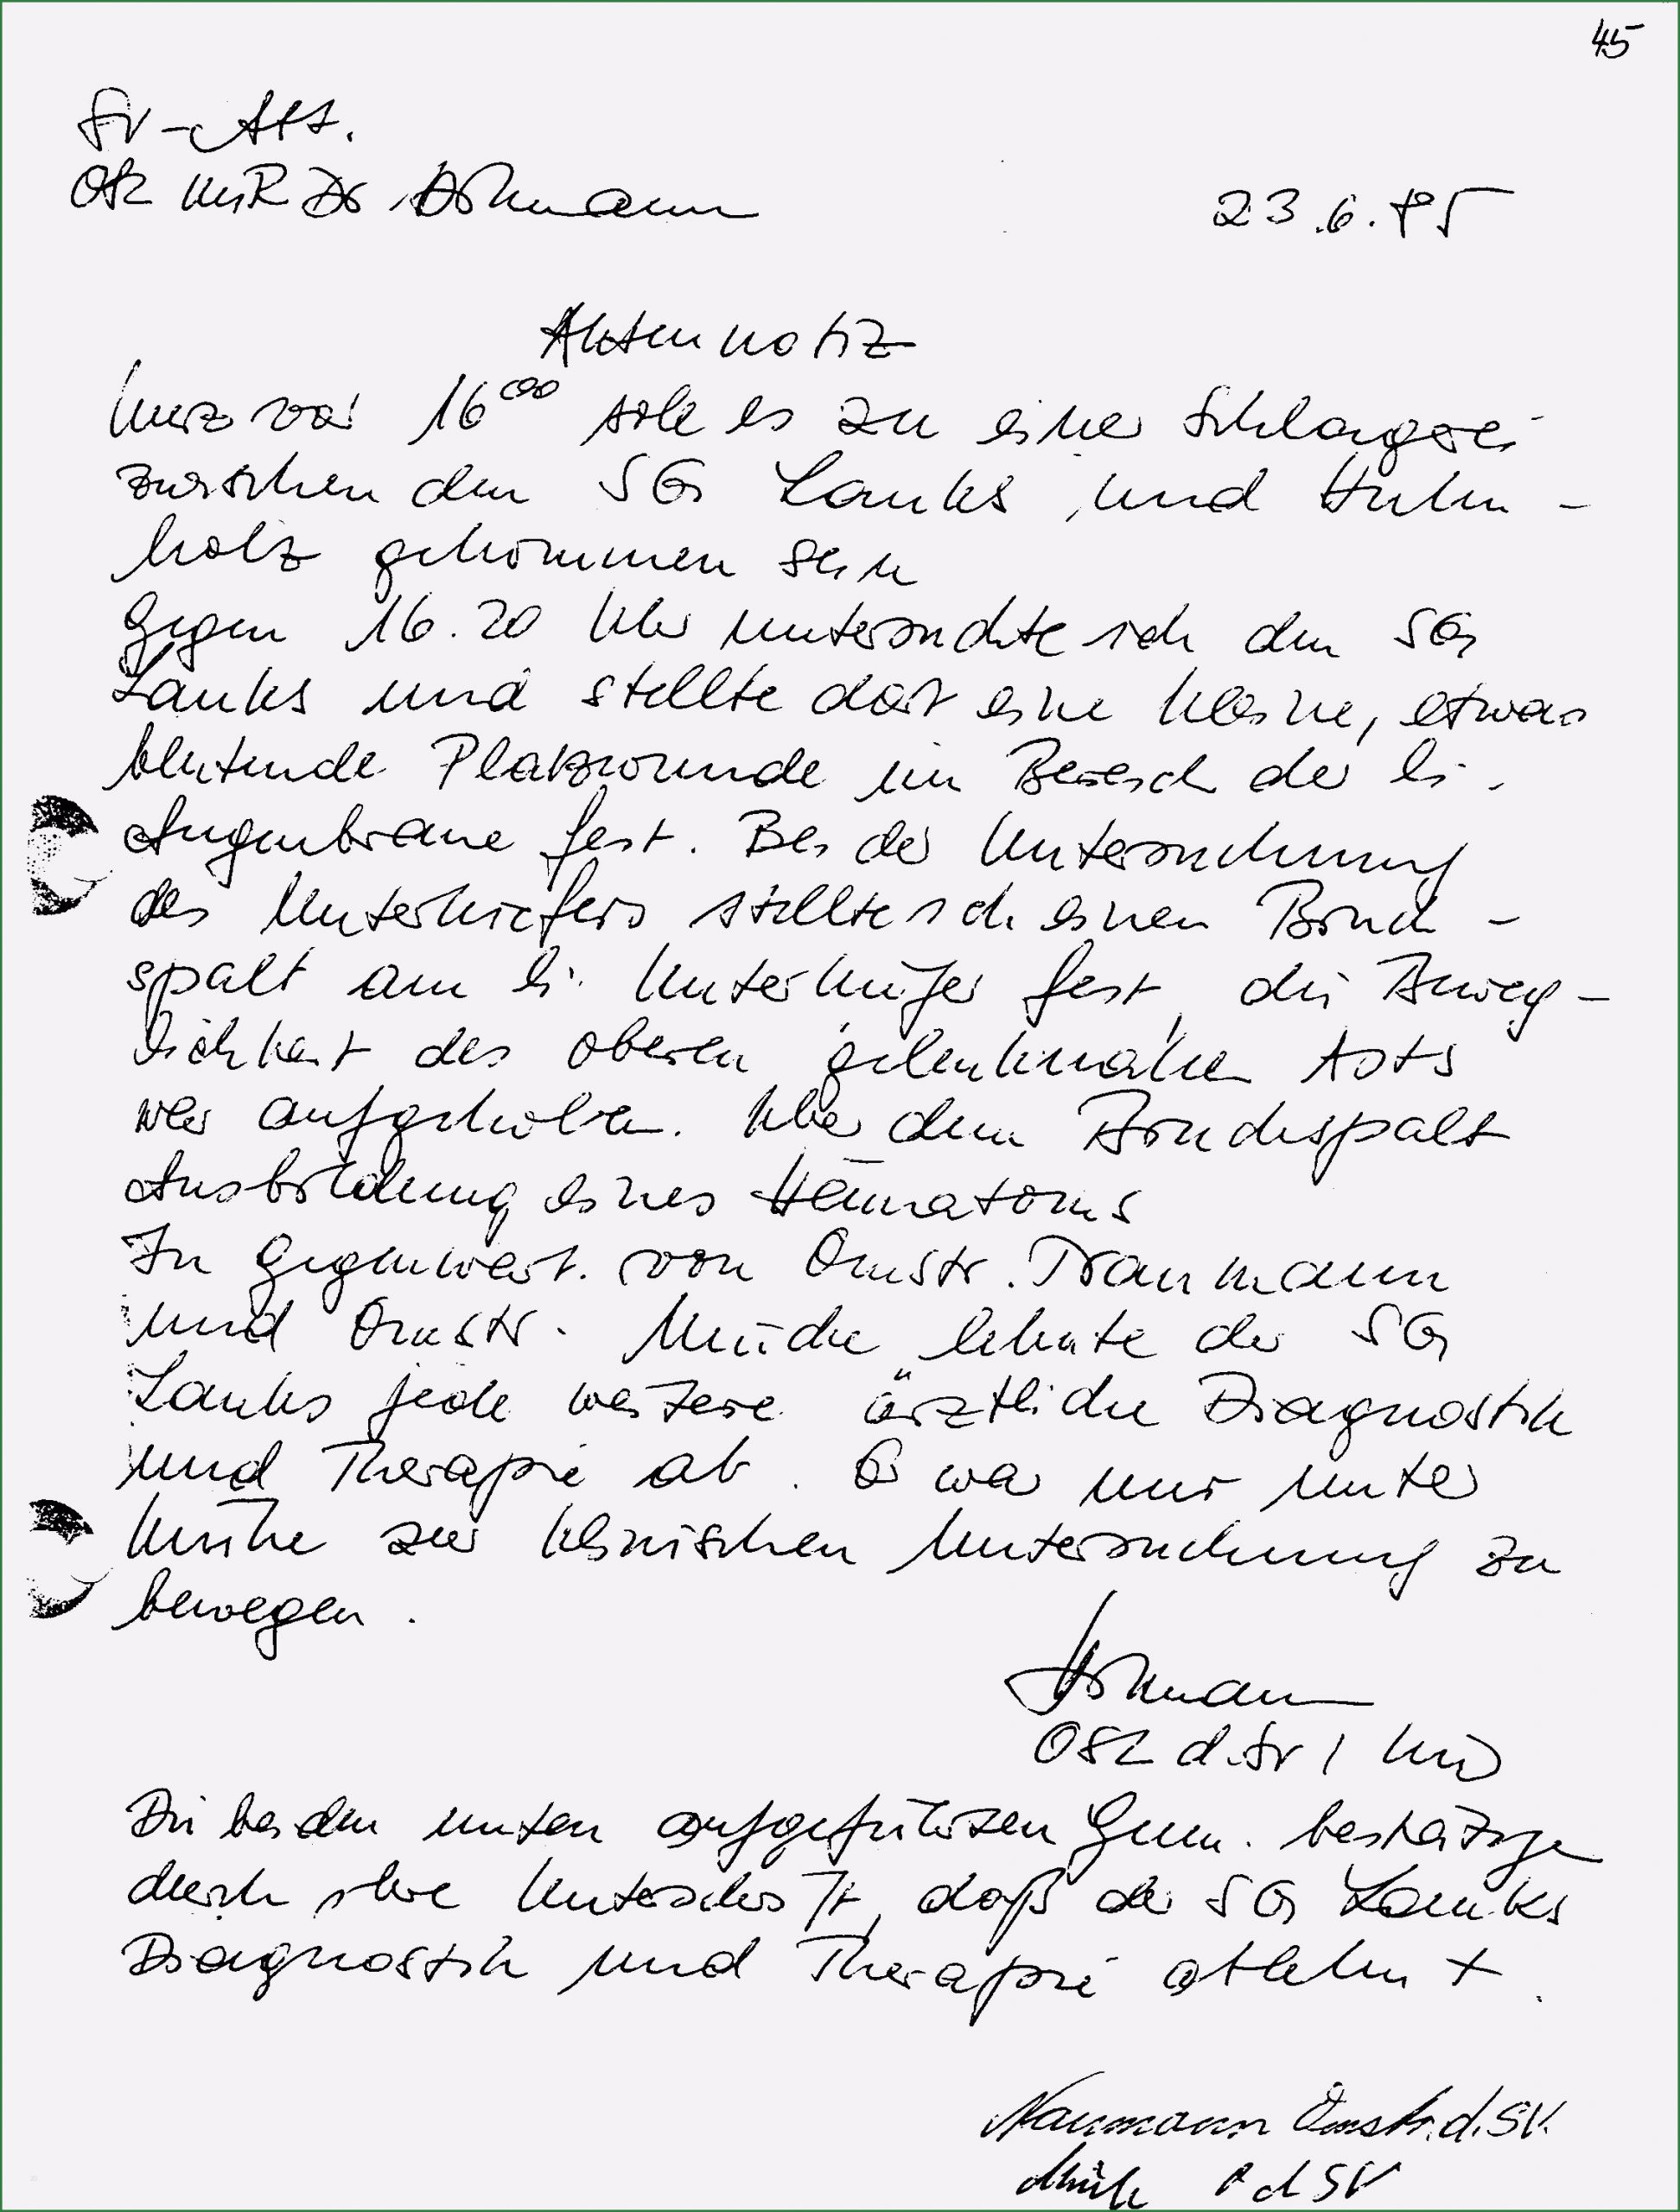 45
SV-Abt.
OSL MR Dr
23.6.85
Aktennotiz
Kurz vor 16⁰⁰ soll es zu einer Schlägerei
zwischen den SG Lauks und
holz gekommen sein
Gegen 16.20 Uhr untersuchte ich den SG
Lauks und stellte dort eine kleine, etwas
blutende Platzwunde im Bereich der li.
Augenbraue fest. Bei der Untersuchung
des Unterkiefers stellte ich einen Bruch-
spalt am li. Unterkiefer fest, die Beweg-
lichkeit des oberen gelenknahen Asts
war aufgehoben. Über dem Bruchspalt
Ausbildung eines Hämatoms
In Gegenwart von Omstr.
und Omstr. lehnte der SG
Lauks jede weitere ärztliche Diagnostik
und Therapie ab. Er war nur unter
Mühe zur klinischen Untersuchung zu
bewegen.
OSL d. SV /
Die beiden unten aufgeführten Gen. bestätigen
durch ihre Unterschrift, daß der SG Lauks
Diagnostik und Therapie ablehnt.
Naumann Omstr. d. SV.
d SV